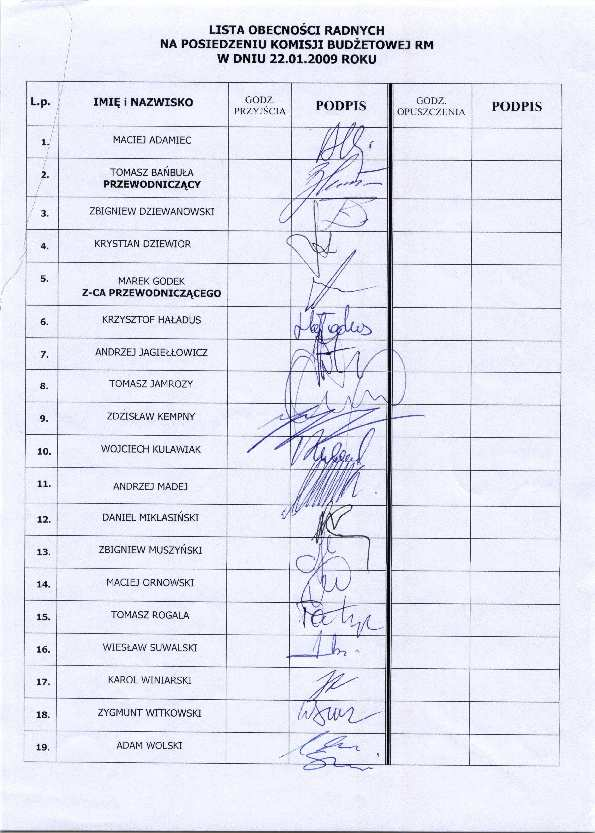 LISTA OBECNOŚCI RADNYCH
NA POSIEDZENIU KOMISJI BUDŻETOWEJ RM
W DNIU 22.01.2009 ROKU
L.p. IMIĘ i NAZWISKO GODZ. PRZYJŚCIA PODPIS GODZ. OPUSZCZENIA PODPIS
1. MACIEJ ADAMIEC
2. TOMASZ BAŃBUŁA
PRZEWODNICZĄCY
3. ZBIGNIEW DZIEWANOWSKI
4. KRYSTIAN DZIEWIOR
5. MAREK GODEK
Z-CA PRZEWODNICZĄCEGO
6. KRZYSZTOF HAŁADUS Haładus
7. ANDRZEJ JAGIEŁŁOWICZ
8. TOMASZ JAMROZY
9. ZDZISŁAW KEMPNY
10. WOJCIECH KULAWIAK
11. ANDRZEJ MADEJ
12. DANIEL MIKŁASIŃSKI
13. ZBIGNIEW MUSZYŃSKI
14. MACIEJ ORNOWSKI
15. TOMASZ ROGALA
16. WIESŁAW SUWALSKI
17. KAROL WINIARSKI
18. ZYGMUNT WITKOWSKI
19. ADAM WOLSKI